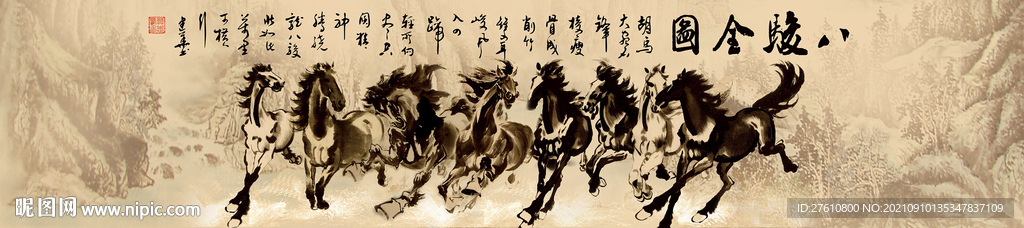 八駿全圖
胡馬
大宛名
鋒
棱瘦
骨成
削竹
峻風
入四
蹄
輕所向
神
龍八駿
萬里
可橫
行
昵图网 www.nipic.com
ID:27610800 NO:20210910135347837109